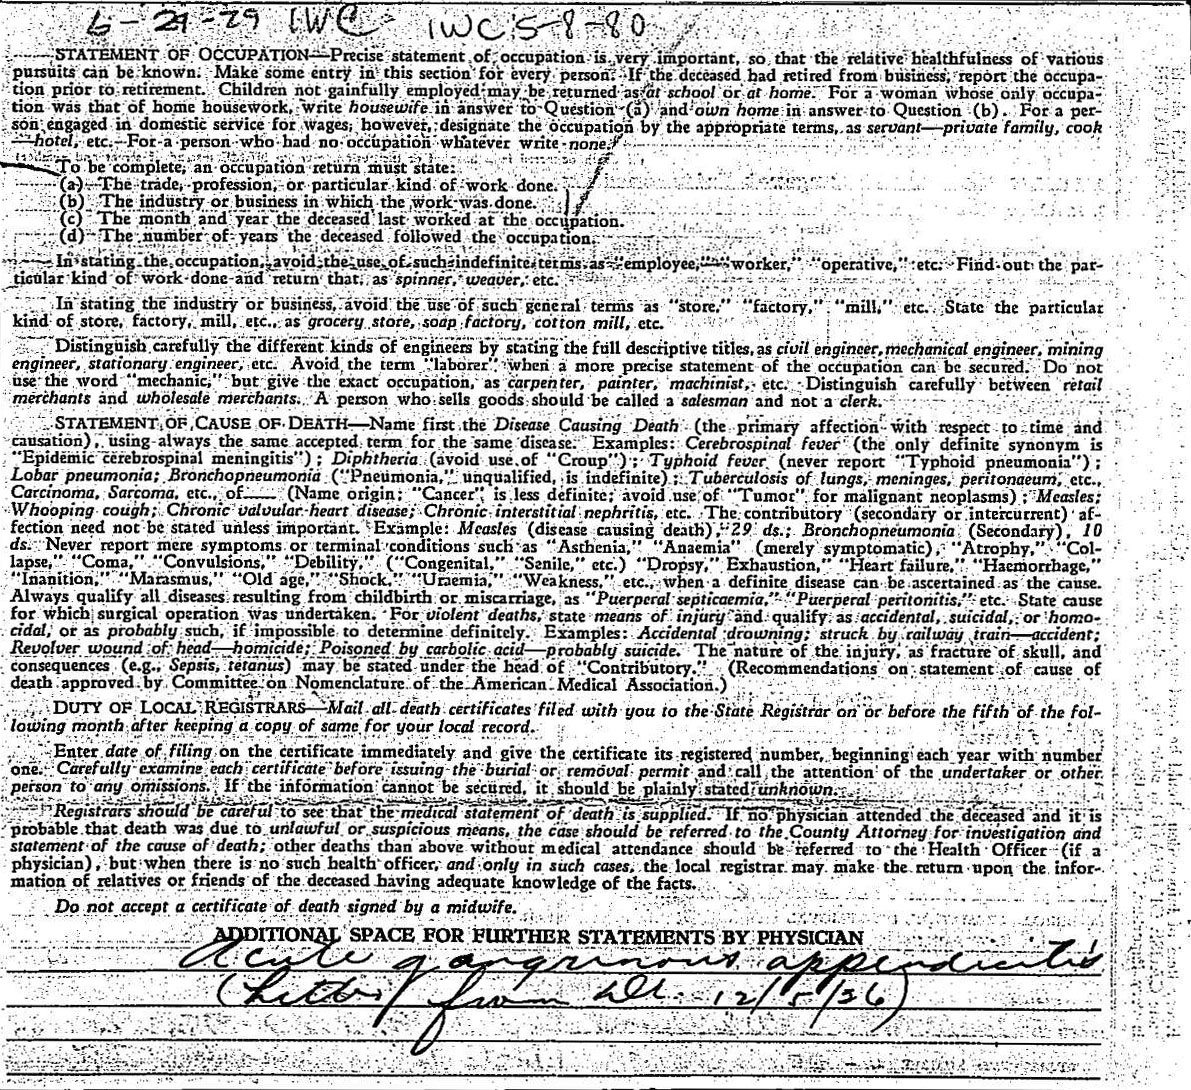 6-29-79 IWC IWC 5-8-80
STATEMENT OF OCCUPATION—Precise statement of occupation is very important, so that the relative healthfulness of various
pursuits can be known. Make some entry in this section for every person. If the deceased had retired from business, report the occupa-
tion prior to retirement. Children not gainfully employed may be returned as at school or at home. For a woman whose only occupa-
tion was that of home housework, write housewife in answer to Question (a) and own home in answer to Question (b). For a per-
son engaged in domestic service for wages, however, designate the occupation by the appropriate terms, as servant—private family, cook
—hotel, etc. For a person who had no occupation whatever write none.
To be complete, an occupation return must state:
(a) The trade, profession, or particular kind of work done.
(b) The industry or business in which the work was done.
(c) The month and year the deceased last worked at the occupation.
(d) The number of years the deceased followed the occupation.
In stating the occupation, avoid the use of such indefinite terms as "employee," "worker," "operative," etc. Find out the par-
ticular kind of work done and return that, as spinner, weaver, etc.
In stating the industry or business, avoid the use of such general terms as "store," "factory," "mill," etc. State the particular
kind of store, factory, mill, etc., as grocery store, soap factory, cotton mill, etc.
Distinguish carefully the different kinds of engineers by stating the full descriptive titles, as civil engineer, mechanical engineer, mining
engineer, stationary engineer, etc. Avoid the term "laborer" when a more precise statement of the occupation can be secured. Do not
use the word "mechanic," but give the exact occupation, as carpenter, painter, machinist, etc. Distinguish carefully between retail
merchants and wholesale merchants. A person who sells goods should be called a salesman and not a clerk.
STATEMENT OF CAUSE OF DEATH—Name first the Disease Causing Death (the primary affection with respect to time and
causation), using always the same accepted term for the same disease. Examples: Cerebrospinal fever (the only definite synonym is
"Epidemic cerebrospinal meningitis"); Diphtheria (avoid use of "Croup"); Typhoid fever (never report "Typhoid pneumonia");
Lobar pneumonia; Bronchopneumonia ("Pneumonia," unqualified, is indefinite); Tuberculosis of lungs, meninges, peritonaeum, etc.,
Carcinoma, Sarcoma, etc., of—— (Name origin; "Cancer" is less definite; avoid use of "Tumor" for malignant neoplasms); Measles;
Whooping cough; Chronic valvular heart disease; Chronic interstitial nephritis, etc. The contributory (secondary or intercurrent) af-
fection need not be stated unless important. Example: Measles (disease causing death), 29 ds.; Bronchopneumonia (Secondary), 10
ds. Never report mere symptoms or terminal conditions such as "Asthenia," "Anaemia" (merely symptomatic), "Atrophy," "Col-
lapse," "Coma," "Convulsions," "Debility," ("Congenital," "Senile," etc.) "Dropsy," Exhaustion," "Heart failure," "Haemorrhage,"
"Inanition," "Marasmus," "Old age," "Shock," "Uraemia," "Weakness," etc., when a definite disease can be ascertained as the cause.
Always qualify all diseases resulting from childbirth or miscarriage, as "Puerperal septicaemia," "Puerperal peritonitis," etc. State cause
for which surgical operation was undertaken. For violent deaths, state means of injury and qualify as accidental, suicidal, or homo-
cidal, or as probably such, if impossible to determine definitely. Examples: Accidental drowning; struck by railway train—accident;
Revolver wound of head—homicide; Poisoned by carbolic acid—probably suicide. The nature of the injury, as fracture of skull, and
consequences (e.g., Sepsis, tetanus) may be stated under the head of "Contributory." (Recommendations on statement of cause of
death approved by Committee on Nomenclature of the American Medical Association.)
DUTY OF LOCAL REGISTRARS—Mail all death certificates filed with you to the State Registrar on or before the fifth of the fol-
lowing month after keeping a copy of same for your local record.
Enter date of filing on the certificate immediately and give the certificate its registered number, beginning each year with number
one. Carefully examine each certificate before issuing the burial or removal permit and call the attention of the undertaker or other
person to any omissions. If the information cannot be secured, it should be plainly stated unknown.
Registrars should be careful to see that the medical statement of death is supplied. If no physician attended the deceased and it is
probable that death was due to unlawful or suspicious means, the case should be referred to the County Attorney for investigation and
statement of the cause of death; other deaths than above without medical attendance should be referred to the Health Officer (if a
physician), but when there is no such health officer, and only in such cases, the local registrar may make the return upon the infor-
mation of relatives or friends of the deceased having adequate knowledge of the facts.
Do not accept a certificate of death signed by a midwife.
ADDITIONAL SPACE FOR FURTHER STATEMENTS BY PHYSICIAN
Acute gangrinous appendicitis
(Letter from Dr. 12/15/26)